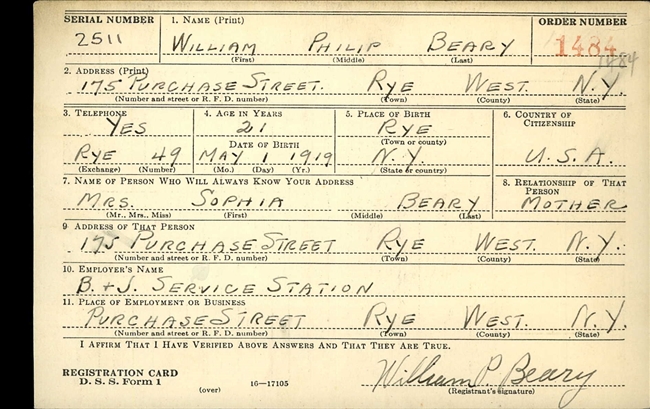 SERIAL NUMBER 1. NAME (Print) ORDER NUMBER
2511 WILLIAM PHILIP BEARY 1484
(First) (Middle) (Last) 1484
2. ADDRESS (Print)
175 PURCHASE STREET. RYE WEST. N.Y.
(Number and street or R. F. D. number) (Town) (County) (State)
3. TELEPHONE 4. AGE IN YEARS 5. PLACE OF BIRTH 6. COUNTRY OF CITIZENSHIP
YES 21 RYE
DATE OF BIRTH (Town or county)
RYE 49 MAY 1 1919 N.Y. U.S.A.
(Exchange) (Number) (Mo.) (Day) (Yr.) (State or country)
7. NAME OF PERSON WHO WILL ALWAYS KNOW YOUR ADDRESS 8. RELATIONSHIP OF THAT PERSON
MRS. SOPHIA BEARY MOTHER
(Mr., Mrs., Miss) (First) (Middle) (Last)
9 ADDRESS OF THAT PERSON
175 PURCHASE STREET RYE WEST. N.Y.
(Number and street or R. F. D. number) (Town) (County) (State)
10. EMPLOYER'S NAME
B. + J. SERVICE STATION
11. PLACE OF EMPLOYMENT OR BUSINESS
PURCHASE STREET RYE WEST. N.Y.
(Number and street or R. F. D. number) (Town) (County) (State)
I AFFIRM THAT I HAVE VERIFIED ABOVE ANSWERS AND THAT THEY ARE TRUE.
REGISTRATION CARD William P. Beary
D. S. S. Form 1 (over) 16—17105 (Registrant's signature)